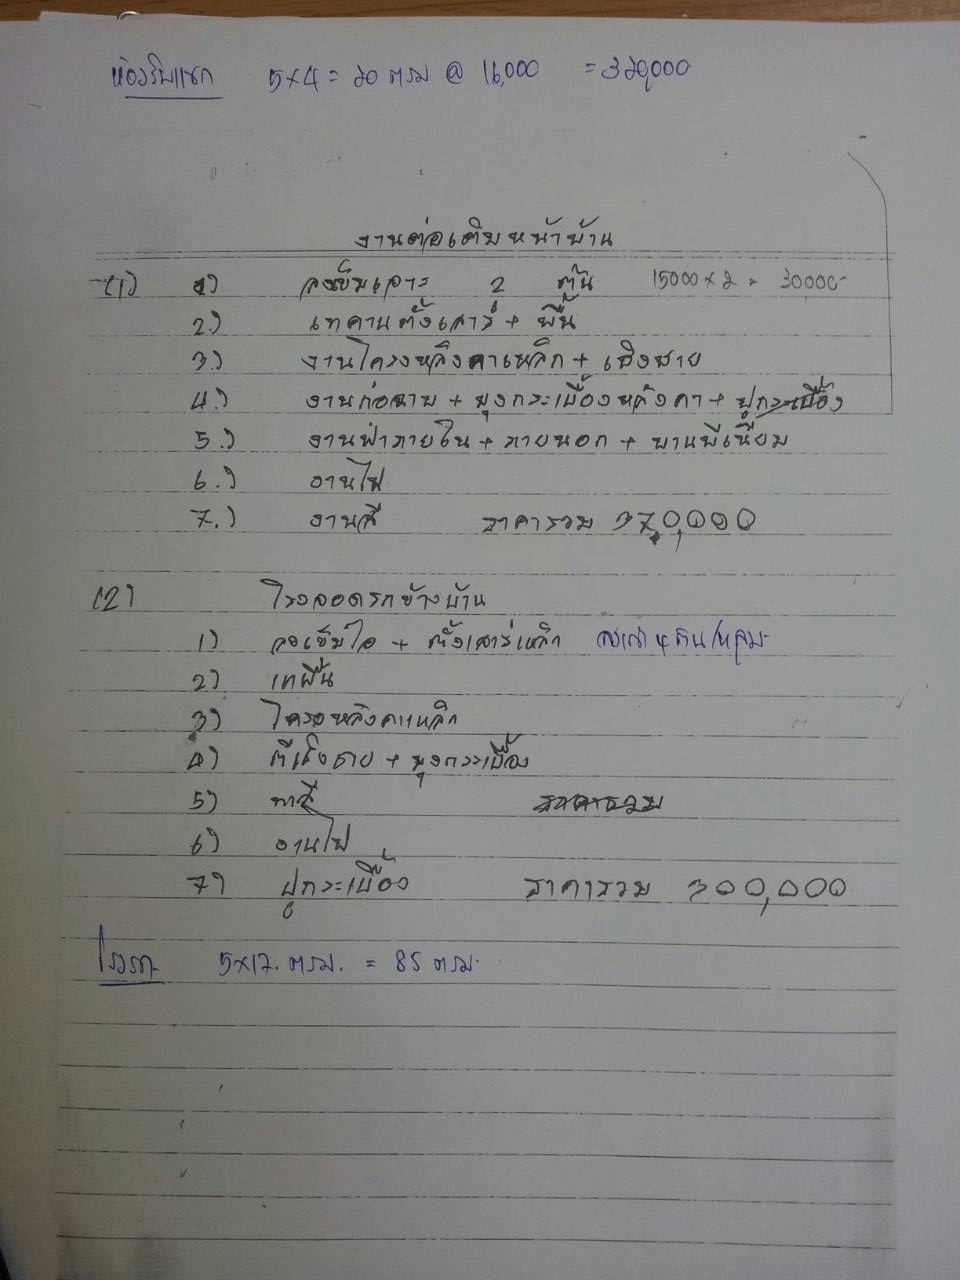 ห้องรับแขก 5×4 = ๒0 ตรม @ 16,000 = 3๒0,000
งานต่อเติมหน้าบ้าน
(1) 1) ลงเข็มเจาะ 2 ต้น 15000×๒ = 30,000-
2.) เทคานตั้งเสาร์ + พื้น
3.) งานโครงหลังคาเหล็ก + เชิงชาย
4.) งานก่อฉาบ + มุงกระเบื้องหลังคา + ปูกระเบื้อง
5.) งานฝ้าภายใน + ภายนอก + บานพีเนี่ยม
6.) งานไฟ
7.) งานสี ราคารวม 370,000
(2) โรงจอดรถข้างบ้าน
1) ลงเข็มไอ + ตั้งเสาร์เหล็ก 4 ต้น/หลุม
2) เทพื้น
3) โครงหลังคาเหล็ก
4) ตีเชิงชาย + มุงกระเบื้อง
5) ทาสี ราคารวม
6) งานไฟ
7) ปูกระเบื้อง ราคารวม 300,000
โรงรถ 5×17. ตรม. = 85 ตรม.